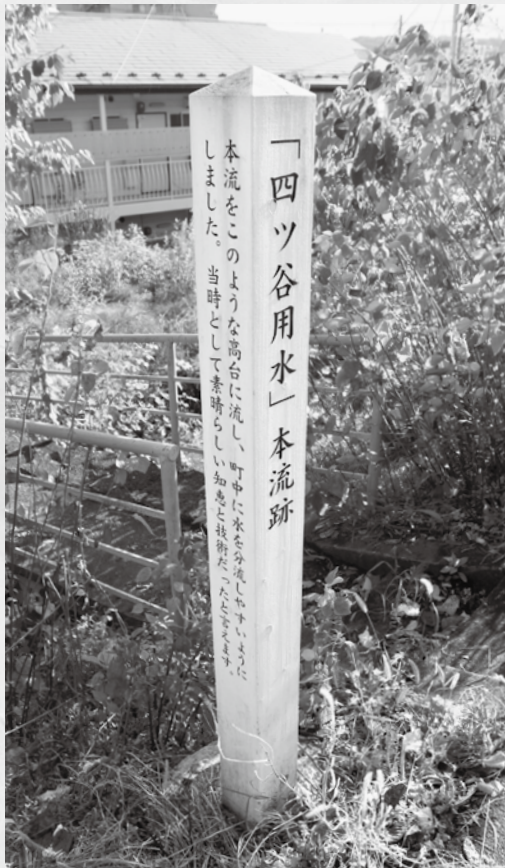 「四ツ谷用水」本流跡
本流をこのような高台に流し、町中に水を分流しやすいように
しました。　当時として素晴らしい知恵と技術だったと言えます。